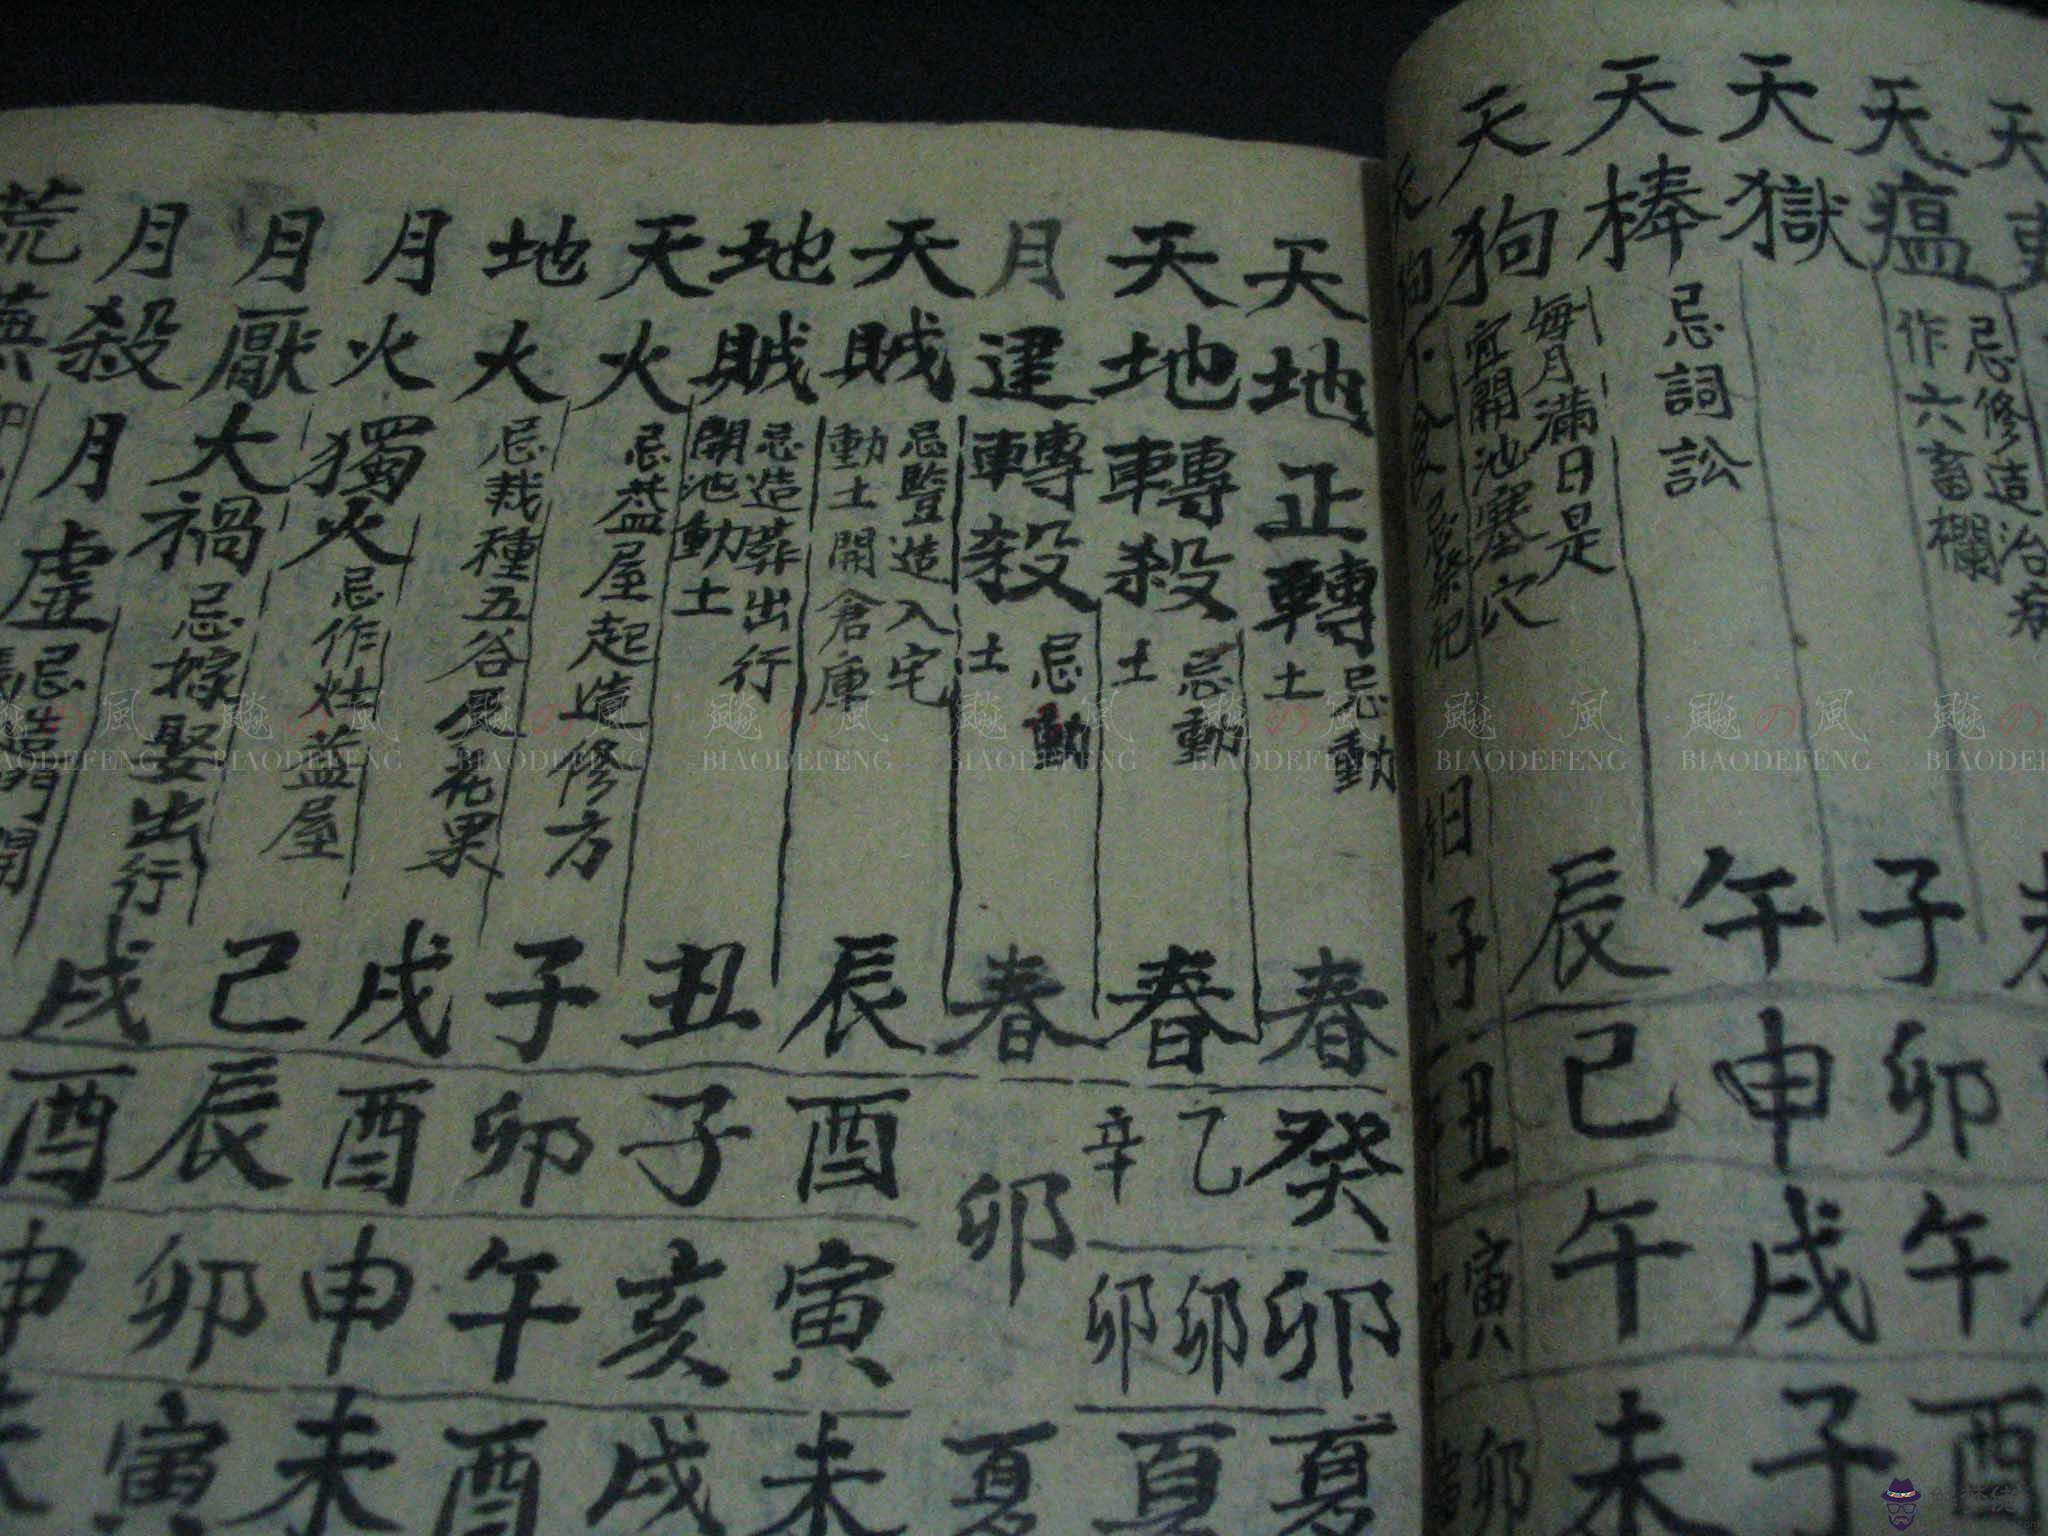 天瘟 忌修造治病作六畜欄 子 卯 午 酉
天獄 午 申 戌 子
天棒 忌詞訟 辰 己 午 未
天狗 每月滿日是宜開池塞穴
子 丑 寅 卯
天地正轉 忌動土 春 癸 卯 夏
天地轉殺 忌動土 春 乙 辛 卯 卯 夏
月建轉殺 忌動土 春 卯 夏
天賊 忌豎造入宅動土開倉庫 辰 酉 寅 未
地賊 忌造葬出行開池動土 丑 子 亥 戌
天火 忌盖屋起造修方 子 卯 午 酉
地火 忌栽種五谷及花果 戌 酉 申 未
月火 獨火 忌作灶盖屋 己 辰 卯 寅
月厭 大禍 忌嫁娶出行 戌 酉 申
月殺 月虛
荒蕪
BIAODEFENG
BIAODEFENG
BIAODEFENG
BIAODEFENG
BIAODEFENG
BIAODEFENG
BIAODEFENG